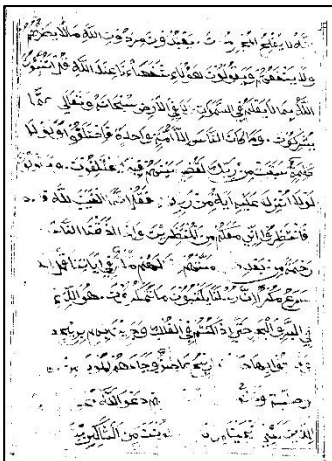 انه لا يفلح المجرمون يعبدون من دون الله ما لا يضرهم
ولا ينفعهم ويقولون هؤلاء شفعاؤنا عند الله قل اتنبئون
الله بما لا يعلم في السموات في الارض سبحانه وتعالى عما
يشركون وما كان الناس الا امة واحدة فاختلفوا ولولا
كلمة سبقت من ربك لقضي بينهم فيه يختلفون ويقولون
لولا انزل عليه اية من ربه فقل انما الغيب لله
فانتظروا اني معكم من المنتظرين واذا اذقنا الناس
رحمة من بعد مستهم لهم مكر في اياتنا قل الله
اسرع مكرا ان رسلنا يكتبون ما تمكرون هو الذي
في البر والبحر حتى اذا كنتم في الفلك وجرين بهم بريح
بها ريح عاصف وجاءهم الموج من
دعوا الله
الدين من الشاكرين